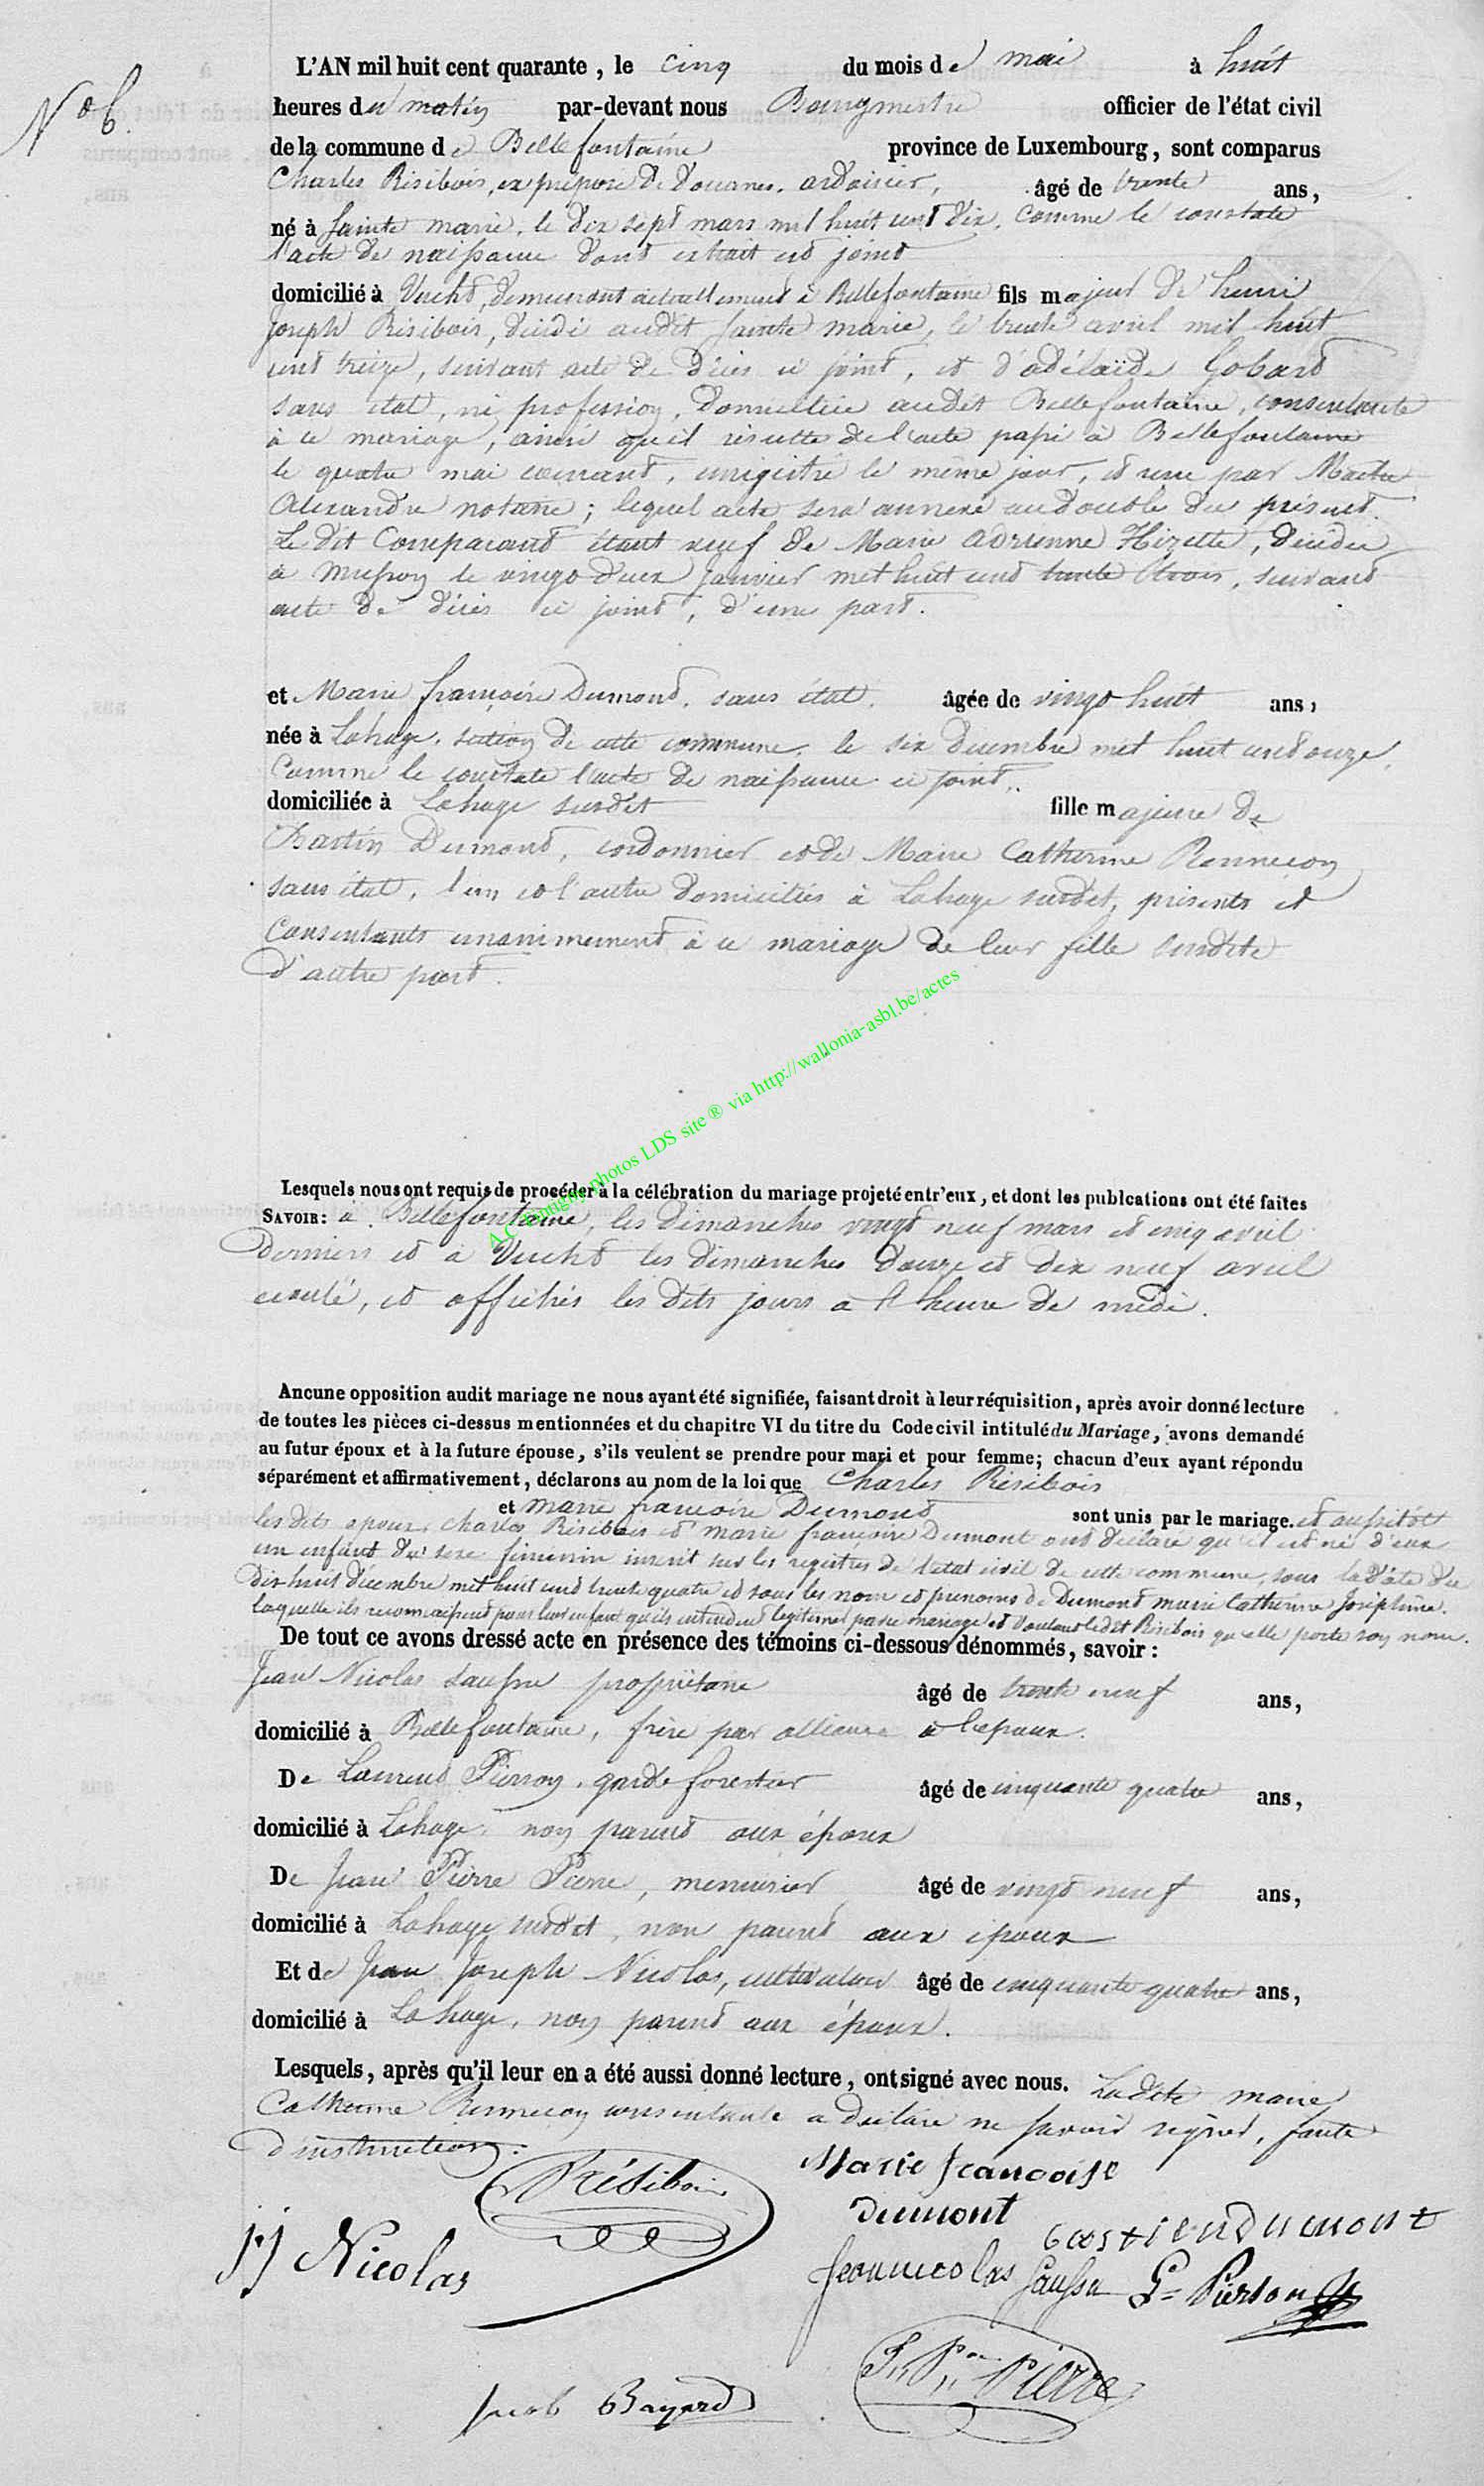 N° 6.
L'AN mil huit cent quarante, le cinq du mois de mai à huit
heures du matin par-devant nous Bourgmestre officier de l'état civil
de la commune de Bellefontaine province de Luxembourg, sont comparus
Charles Résibois, ex préposé de Douanes, ardoisier, âgé de trente ans,
né à Sainte marie, le dix sept mars mil huit cent dix, comme le constate
l'acte de naissance dont extrait est joint
domicilié à Vucht, demeurant actuellement à Bellefontaine fils majeur de henri
Joseph Résibois, décédé audit Sainte marie, le trente avril mil huit
cent treize, suivant acte de décès ci joint, et d'adélaïde Gobard
sans état, ni profession, domiciliée audit Bellefontaine, consentante
à ce mariage, ainsi qu'il résulte de l'acte passé à Bellefontaine
le quatre mai courant, enregistré le même jour, et reçu par Maitre
Alexandre notaire; lequel acte sera annexé au double du présent.
Le dit Comparant étant veuf de Marie Adrienne Hizette, décédée
à Musson le vingt deux Janvier mil huit cent trente trois, suivant
acte de décès ci joint, d'une part.
et Marie françoise Dumont, sans état, âgée de vingt huit ans,
née à Lahage, section de cette commune, le six décembre mil huit cent onze,
Comme le constate l'acte de naissance ci joint,
domiciliée à Lahage susdit fille majeure de
Bastien Dumont, cordonnier et de Marie Catherine
sans état, l'un et l'autre domiciliés à Lahage susdit, présents et
Consentants unanimement à ce mariage de leur fille susdite
d'autre part.
A.C. Tintigny photos LDS site ® via http://wallonia-asbl.be/actes
Lesquels nous ont requis de procéder à la célébration du mariage projeté entr'eux, et dont les publcations ont été faites
SAVOIR: à Bellefontaine, les dimanches vingt neuf mars et cinq avril
derniers et à Vucht les dimanches douze et dix neuf avril
écoulé, et affichés les dits jours à l'heure de midi.
Ancune opposition audit mariage ne nous ayant été signifiée, faisant droit à leur réquisition, après avoir donné lecture
de toutes les pièces ci-dessus mentionnées et du chapitre VI du titre du Code civil intitulé du Mariage, avons demandé
au futur époux et à la future épouse, s'ils veulent se prendre pour mari et pour femme; chacun d'eux ayant répondu
séparément et affirmativement, déclarons au nom de la loi que Charles Résibois
et marie francoise Dumont sont unis par le mariage. et aussitôt
les dits époux Charles Résibois et marie françoise Dumont ont déclaré qu'il est né d'eux
un enfant du sexe féminin inscrit sur les registres de l'état civil de cette commune, sous la date du
dix huit décembre mil huit cent trente quatre et sous les nom et prénoms de Dumont marie Catherine Joséphine.
laquelle ils reconnaissent pour leur enfant qu'ils entendent légitimer par ce mariage et voulant ledit Résibois qu'elle porte son nom.
De tout ce avons dressé acte en présence des témoins ci-dessous dénommés, savoir:
Jean Nicolas Saussu propriétaire âgé de trente neuf ans,
domicilié à Bellefontaine, frère par alliance à l'époux.
De Laurent Pierson, garde forestier âgé de cinquante quatre ans,
domicilié à Lahage, non parent aux époux
De Jean Pierre Pierre, menuisier âgé de vingt neuf ans,
domicilié à Lahage susdit, non parent aux époux
Et de Jean Joseph Nicolas, cultivateur âgé de cinquante quatre ans,
domicilié à Lahage, non parent aux époux.
Lesquels, après qu'il leur en a été aussi donné lecture, ont signé avec nous. Ladite marie
Catherine consentante a déclaré ne savoir signer, faute
d'instruction.
Résibois
Marie françoise
dumont
bastien dumont
JJ Nicolas
Jean nicolas Saussu
L = Pierson
Jn Pre Pierre
Jacob Bayard